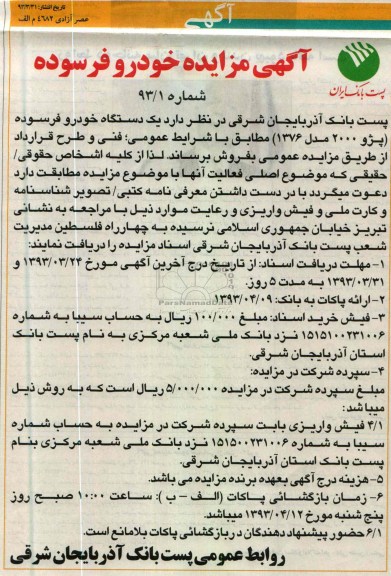 آگهی
تاریخ انتشار: ۹۳/۳/۳۱
عصر آزادی ۴۶۸۲ م الف
آگهی مزایده خودرو فرسوده
پست بانک ایران
شماره ۹۳/۱
پست بانک آذربایجان شرقی در نظر دارد یک دستگاه خودرو فرسوده
(پژو ۲۰۰۰ مدل ۱۳۷۶) مطابق با شرایط عمومی؛ فنی و طرح قرارداد
از طریق مزایده عمومی بفروش برساند. لذا از کلیه اشخاص حقوقی/
حقیقی که موضوع اصلی فعالیت آنها با موضوع مزایده مطابقت دارد
دعوت میگردد با در دست داشتن معرفی نامه کتبی/ تصویر شناسنامه
و کارت ملی و فیش واریزی و رعایت موارد ذیل با مراجعه به نشانی
تبریز خیابان جمهوری اسلامی نرسیده به چهارراه فلسطین مدیریت
شعب پست بانک آذربایجان شرقی اسناد مزایده را دریافت نمایند:
۱- مهلت دریافت اسناد: از تاریخ درج آخرین آگهی مورخ ۱۳۹۳/۰۳/۲۴ و
۱۳۹۳/۰۳/۳۱ به مدت ۵ روز.
۲- ارائه پاکات به بانک: ۱۳۹۳/۰۴/۰۹
۳- فیش خرید اسناد: مبلغ ۱۰۰/۰۰۰ ریال به حساب سیبا به شماره
۱۵۱۵۱۰۰۲۳۱۰۰۶ نزد بانک ملی شعبه مرکزی به نام پست بانک
استان آذربایجان شرقی.
۴- سپرده شرکت در مزایده:
مبلغ سپرده شرکت در مزایده ۵/۰۰۰/۰۰۰ ریال است که به روش ذیل
میباشد:
۴/۱ فیش واریزی بابت سپرده شرکت در مزایده به حساب شماره
سیبا به شماره ۱۵۱۵۰۰۲۳۱۰۰۶ نزد بانک ملی شعبه مرکزی بنام
پست بانک استان آذربایجان شرقی.
۵- هزینه درج آگهی بعهده برنده مزایده می باشد.
۶- زمان بازگشائی پاکات (الف - ب): ساعت ۱۰:۰۰ صبح روز
پنج شنبه مورخ ۱۳۹۳/۰۴/۱۲ میباشد.
۶/۱ حضور پیشنهاد دهندگان در بازگشائی پاکات بلامانع است.
روابط عمومی پست بانک آذربایجان شرقی